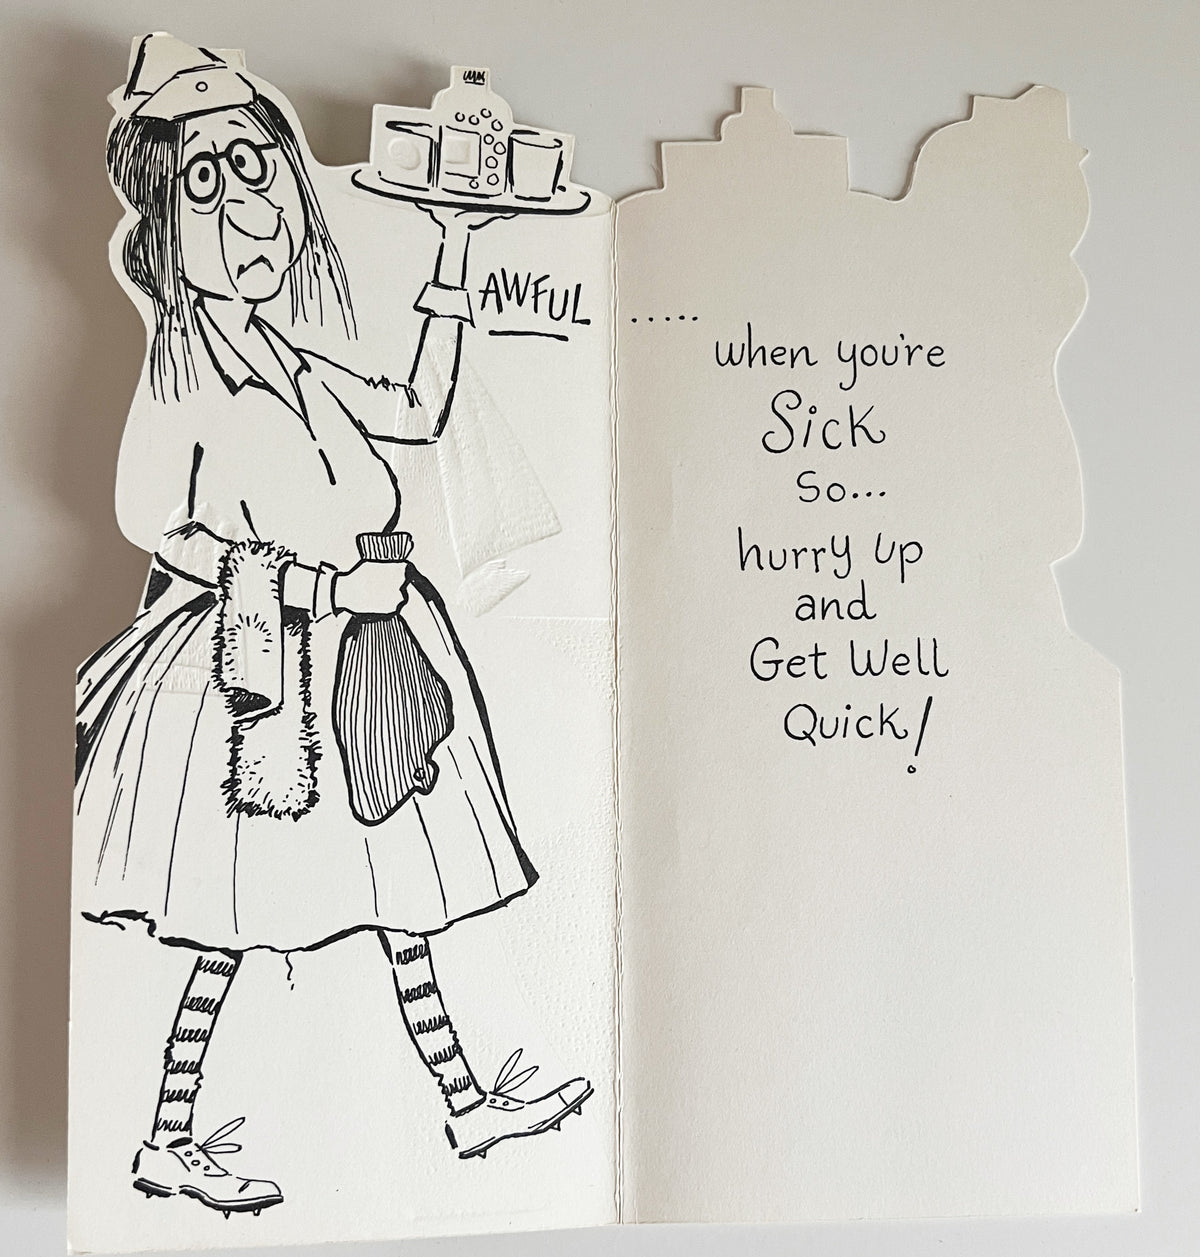 AWFUL
.....
when you're
Sick
So...
hurry up
and
Get Well
Quick!